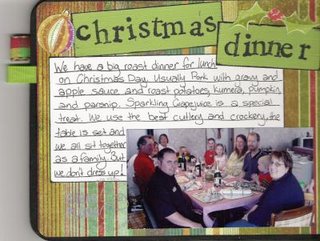 christmas
dinner
We have a big roast dinner for lunch
on Christmas Day. Usually Pork with gravy and
apple sauce and roast potatoes, kumera, pumpkin
and parsnip. Sparkling Grapejuice is a special
treat. We use the best cutlery and crockery, the
table is set and
we all sit together
as a family. But
we don't dress up!